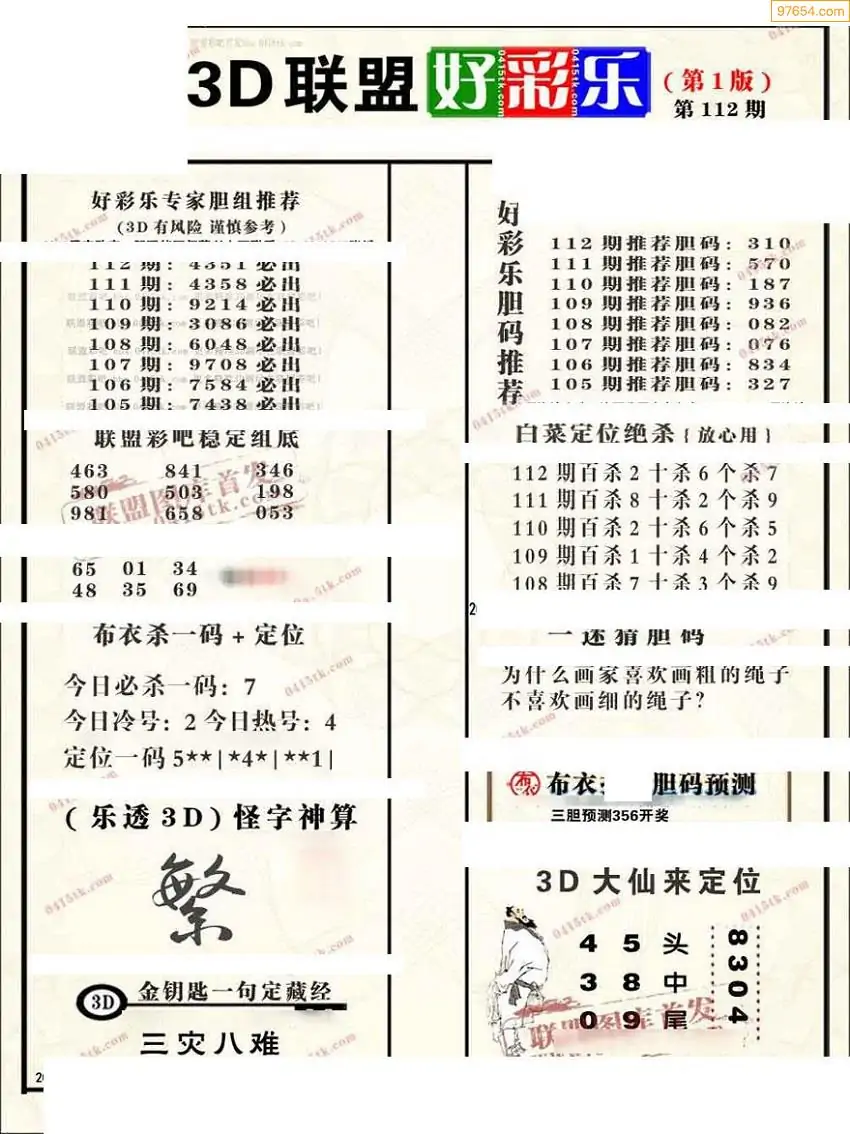 97654.com
3D联盟好彩乐
(第1版)
第112期
好彩乐专家胆组推荐
(3D有风险 谨慎参考)
112期:4351必出
111期:4358必出
110期:9214必出
109期:3086必出
108期:6048必出
107期:9708必出
106期:7584必出
105期:7438必出
联盟彩吧稳定组底
463 841 346
580 503 198
981 658 053
65 01 34
48 35 69
布衣杀一码+定位
今日必杀一码:7
今日冷号:2 今日热号:4
定位一码5**|*4*|**1|
(乐透3D)怪字神算
繁
3D
金钥匙一句定藏经
三灾八难
好彩乐胆码推荐
112期推荐胆码:310
111期推荐胆码:570
110期推荐胆码:187
109期推荐胆码:936
108期推荐胆码:082
107期推荐胆码:076
106期推荐胆码:834
105期推荐胆码:327
白菜定位绝杀{放心用}
112期百杀2十杀6个杀7
111期百杀8十杀2个杀9
110期百杀2十杀6个杀5
109期百杀1十杀4个杀2
108期百杀7十杀3个杀9
一迷猜胆码
为什么画家喜欢画粗的绳子
不喜欢画细的绳子?
布衣 胆码预测
三胆预测356开奖
3D大仙来定位
4 5 头
3 8 中
0 9 尾
8304
联盟图库首发
0415tk.com